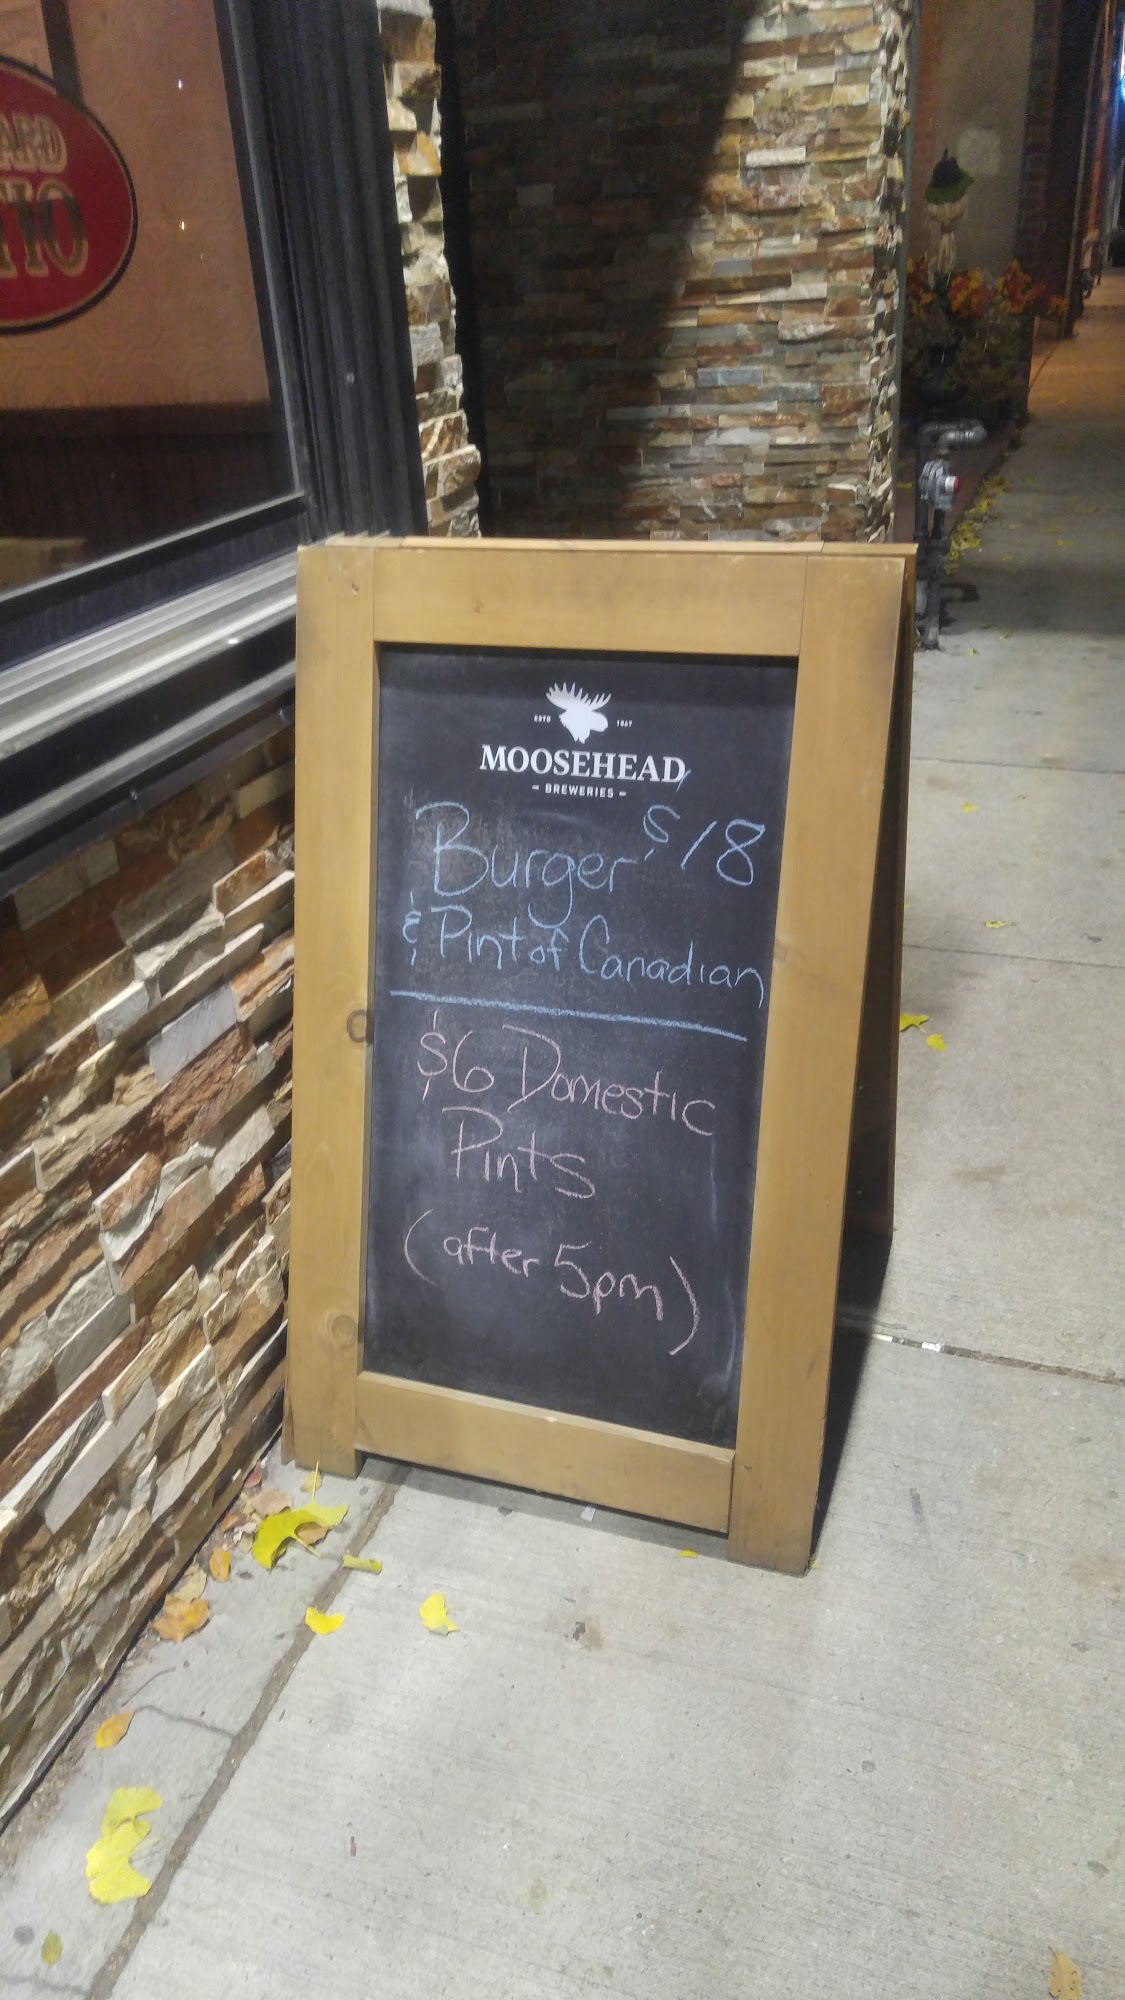 ARD
TIO
ESTD 1867
MOOSEHEAD
- BREWERIES -
Burger $18
& Pint of Canadian
$6 Domestic
Pints
(after 5pm)